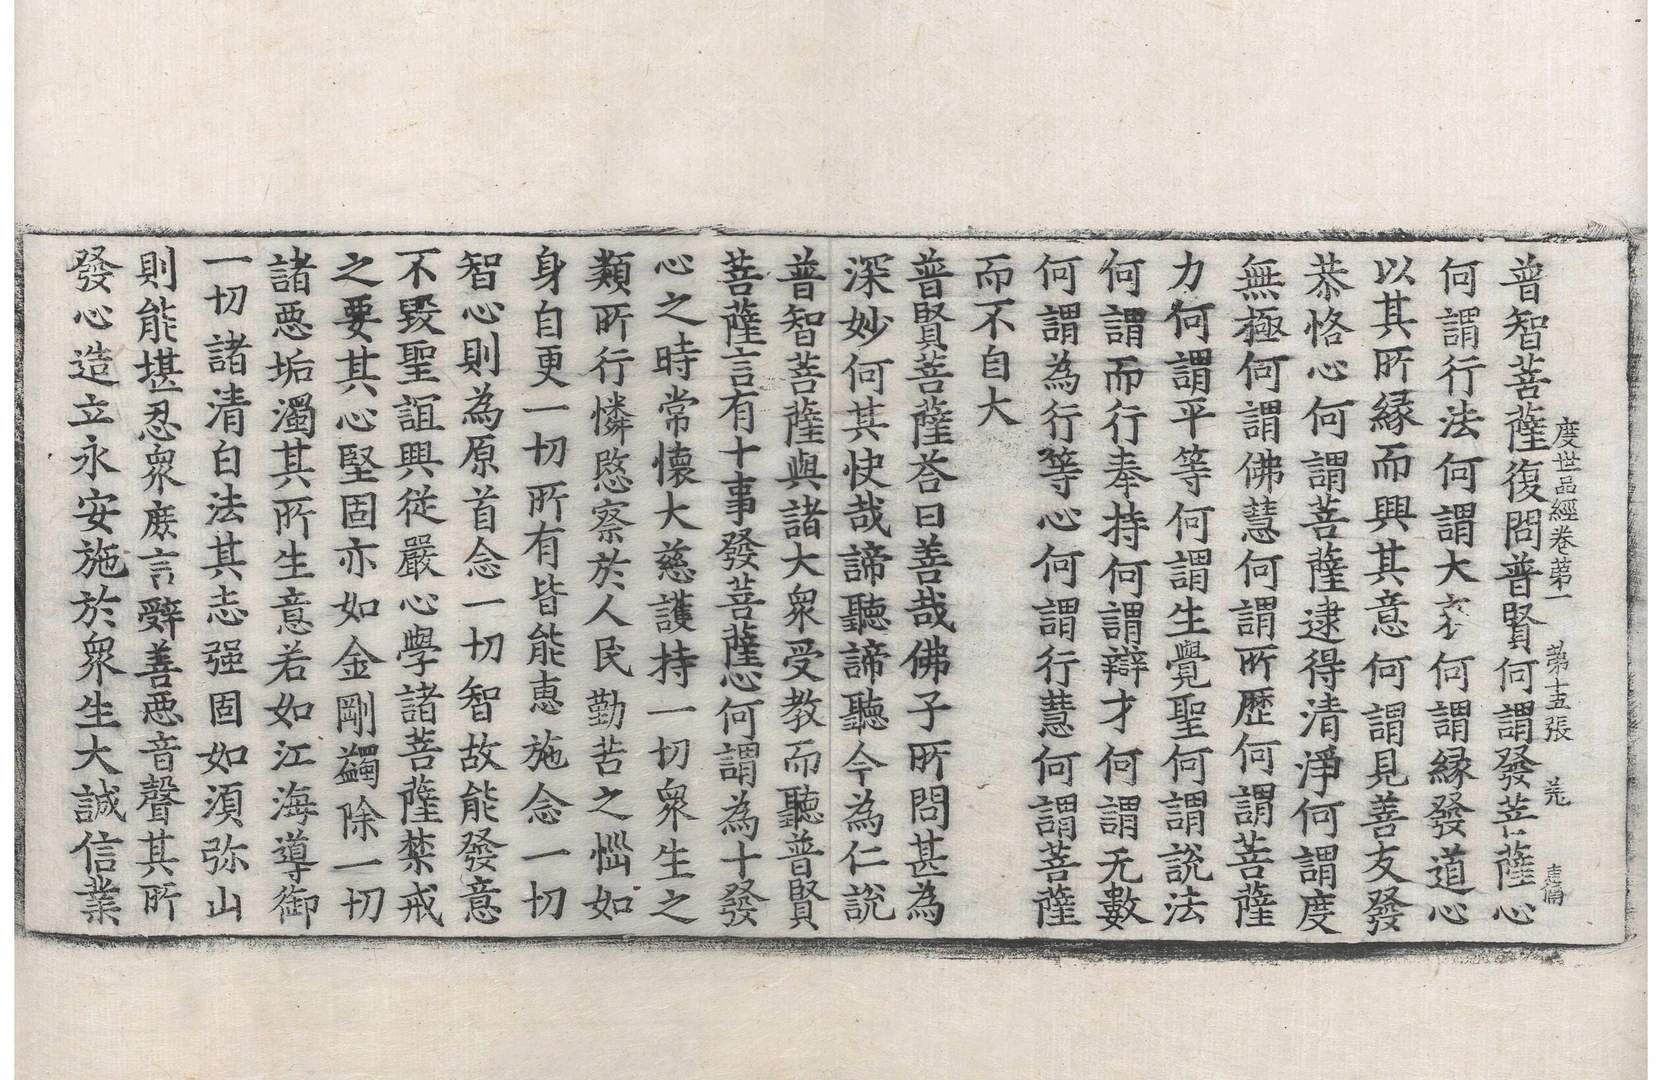 度世品經卷第一　第十五張　羌
普智菩薩復問普賢何謂發菩薩心
何謂行法何謂大哀何謂縁發道心
以其所縁而興其意何謂見善友發
恭恪心何謂菩薩逮得清淨何謂度
無極何謂佛慧何謂所歷何謂菩薩
力何謂平等何謂生覺聖何謂說法
何謂而行奉持何謂辯才何謂无數
何謂為行等心何謂行慧何謂菩薩
而不自大
普賢菩薩荅曰善哉佛子所問甚為
深妙何其快哉諦聽諦聽今為仁說
普智菩薩與諸大衆受教而聽普賢
菩薩言有十事發菩薩心何謂為十發
心之時常懷大慈護持一切衆生之
類所行憐愍察於人民勤苦之惱如
身自更一切所有皆能惠施念一切
智心則為原首念一切智故能發意
不毀聖誼興從嚴心學諸菩薩禁戒
之要其心堅固亦如金剛蠲除一切
諸惡垢濁其所生意若如江海導御
一切諸清白法其志强固如須弥山
則能堪忍衆庶言辭善惡音聲其所
發心造立永安施於衆生大誠信業